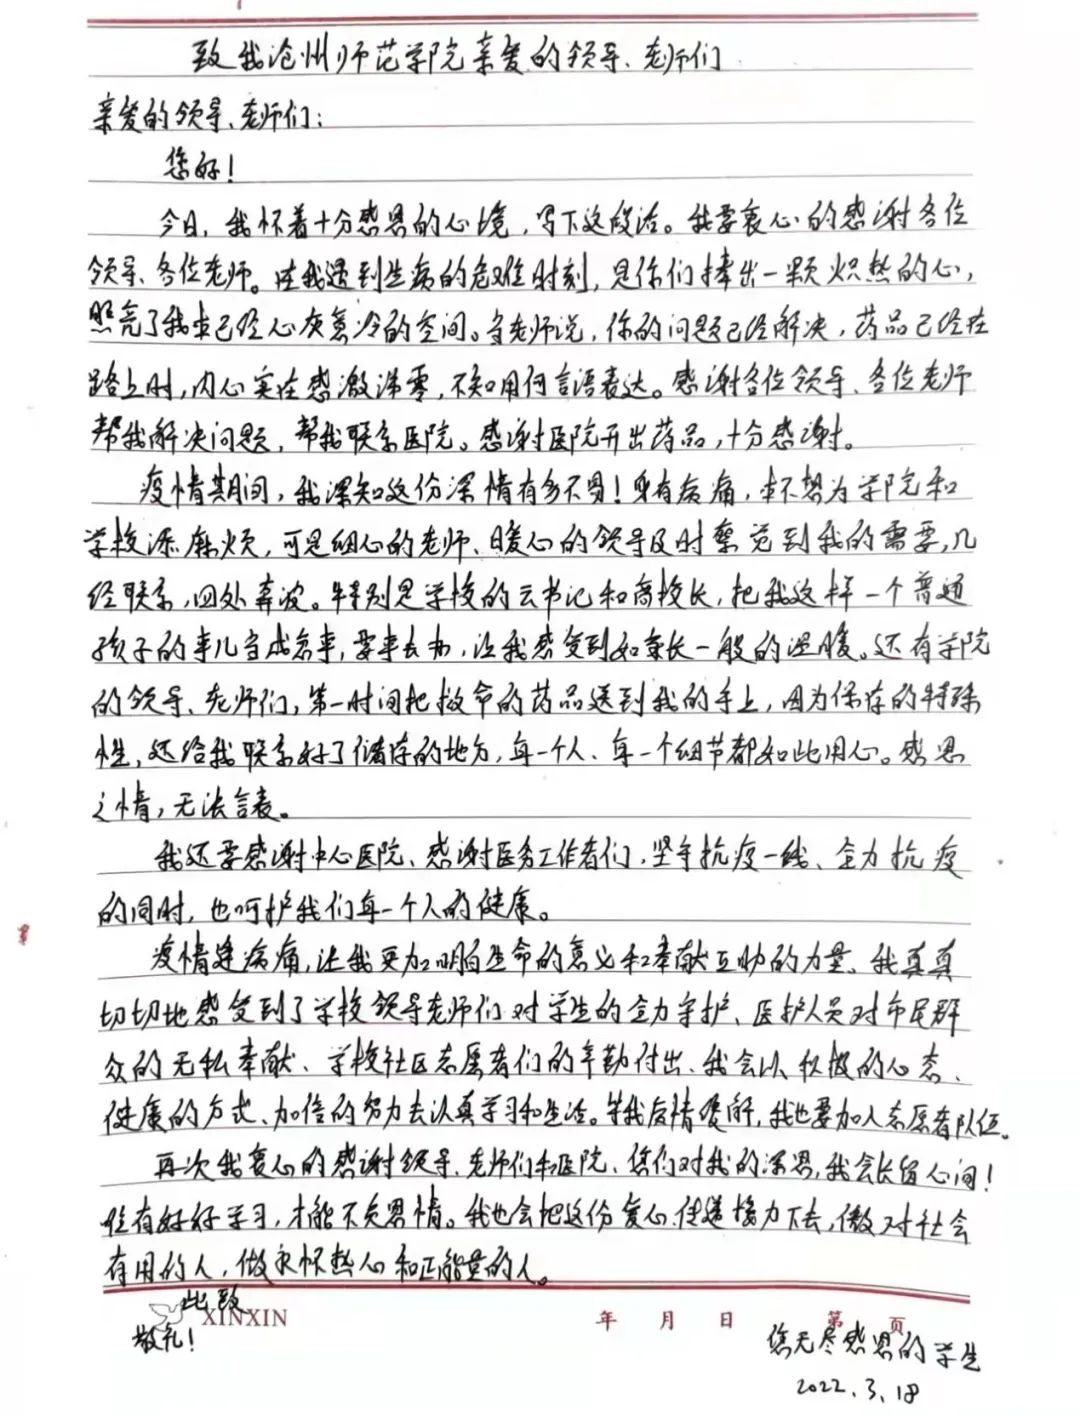 致我沧州师范学院亲爱的领导、老师们
亲爱的领导、老师们：
您好！
今日，我怀着十分感恩的心境，写下这段话。我要衷心的感谢各位
领导、各位老师。在我遇到生病的危难时刻，是你们捧出一颗炽热的心，
照亮了我本已经心灰意冷的空间。当老师说，你的问题已经解决，药品已经在
路上时，内心实在感激涕零，不知用何言语表达。感谢各位领导、各位老师
帮我解决问题，帮我联系医院。感谢医院开出药品，十分感谢。
疫情期间，我深知这份深情有多不易！身有病痛，本不想为学院和
学校添麻烦，可是细心的老师、暖心的领导及时察觉到我的需要，几
经联系，四处奔波。特别是学校的云书记和高校长，把我这样一个普通
孩子的事儿当成急事，要事去办，让我感受到如家长一般的温暖。还有学院
的领导、老师们，第一时间把救命的药品送到我的手上，因为保存的特殊
性，还给我联系好了储存的地方，每一个人、每一个细节都如此用心。感恩
之情，无法言表。
我还要感谢中心医院、感谢医务工作者们，坚守抗疫一线、全力抗疫
的同时，也呵护我们每一个人的健康。
疫情连病痛，让我更加明白生命的意义和奉献互助的力量。我真真
切切地感受到了学校领导老师们对学生的全力守护、医护人员对市民群
众的无私奉献、学校社区志愿者们的辛勤付出、我会以积极的心态、
健康的方式、加倍的努力去认真学习和生活。等我疫情缓解，我也要加入志愿者队伍。
再次我衷心的感谢领导、老师们和医院、您们对我的深恩，我会长留心间！
唯有好好学习，才能不负恩情。我也会把这份爱心传递接力下去，做对社会
有用的人，做永怀热心和正能量的人。
此致
XINXIN 年 月 日 第 页
敬礼！
您无尽感恩的学生
2022.3.18